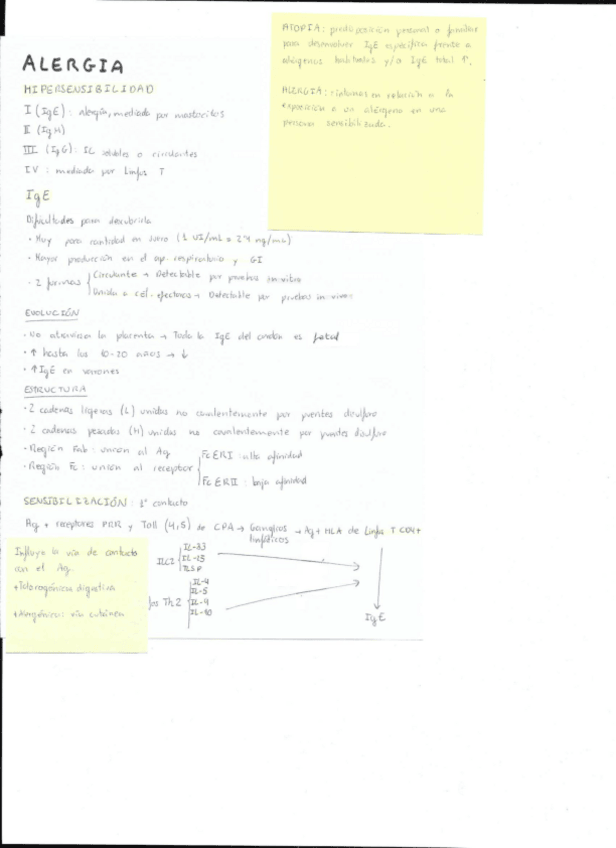 ATOPIA: predisposición personal o familiar
para desenvolver IgE específica frente a
alérgenos habituales y/o IgE total ↑.
ALERGIA: síntomas en relación a la
exposición a un alérgeno en una
persona sensibilizada.
ALERGIA
HIPERSENSIBILIDAD
I (IgE): alergia, mediada por mastocitos
II (IgM)
III (IgG): IC solubles o circulantes
IV: mediada por Linfos T
IgE
Dificultades para descubrirla
· Muy poca cantidad en suero (1 UI/mL = 2'4 ng/mL)
· Mayor producción en el ap. respiratorio y GI
· 2 formas
Circulante → Detectable por pruebas in vitro
Unida a cél. efectoras → Detectable por pruebas in vivo
EVOLUCIÓN
· No atraviesa la placenta → Toda la IgE del cordón es fetal
· ↑ hasta los 10-20 años → ↓
· ↑ IgE en varones
ESTRUCTURA
· 2 cadenas ligeras (L) unidas no covalentemente por puentes disulfuro
· 2 cadenas pesadas (H) unidas no covalentemente por puentes disulfuro
· Región Fab: unión al Ag
· Región Fc: unión al receptor
FcεRI: alta afinidad
FcεRII: baja afinidad
SENSIBILIZACIÓN: 1º contacto
Ag + receptores PRR y Toll (4,5) de CPA → Ganglios linfáticos → Ag + HLA de Linfos T CD4+
Influye la vía de contacto
con el Ag.
+Tolerogénica digestiva
+Alergénica: vía cutánea
IL-33
IL-25
TLSP
Th2
IL-4
IL-5
IL-9
IL-10
IgE